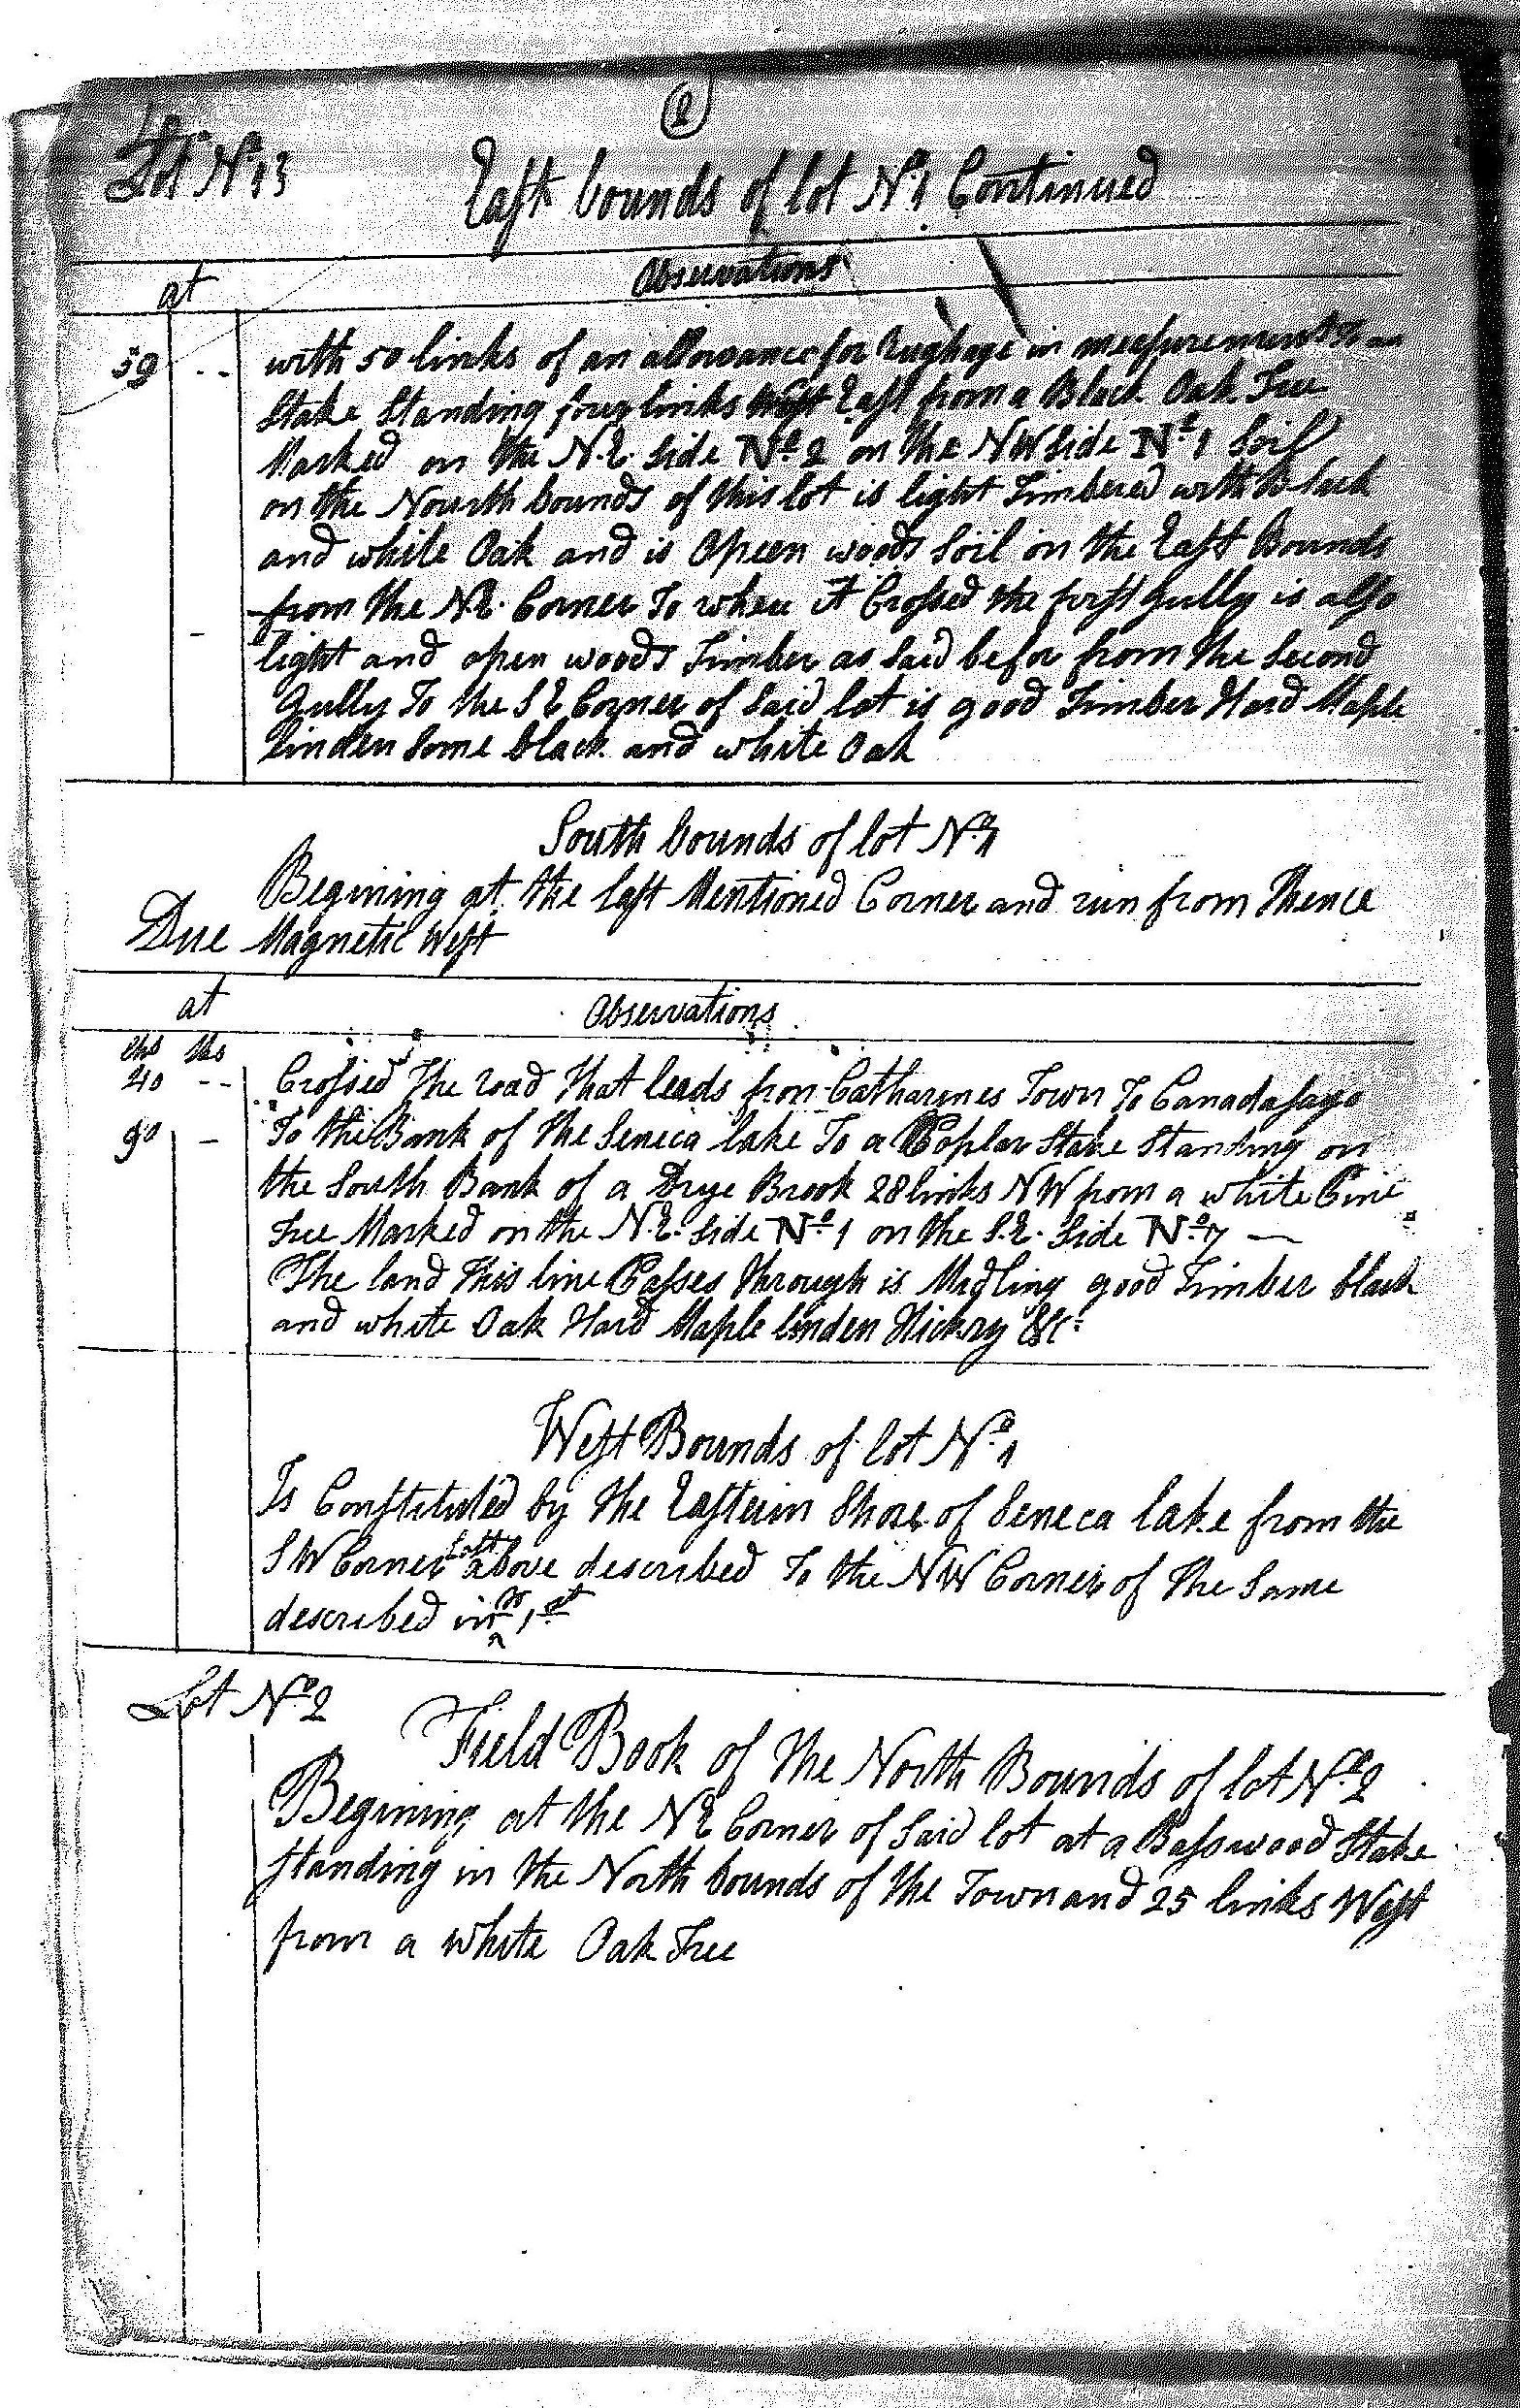 2
Lot No 13
East bounds of lot No 1 Continued
at Observations
59 -- with 50 links of an allowance for Rughage in measurements to an
Stake Standing four links West East from a Black Oak Tree
Marked on the N.E. Side No 2 on the NW Side No 1 Soil
on the Nourth bounds of this lot is light Timbered with Black
and white Oak and is Opeen woods Soil on the East Bounds
from the N.E. Corner To when it Crossed the first Gully is also
- light and open woods Timber as Said befor from the Second
Gully To the S E Corner of Said lot is good Timber Hard Maple
linden Some black and white Oak
South bounds of lot No 1
Begining at the last Mentioned Corner and run from Thence
Due Magnetic West
at Observations
chs lks
40 -- Crossed The road that leads from Catharines Town To Canadasago
90 - To the Bank of the Seneca lake To a Poplar Stake Standing on
the South Bank of a Drye Brook 28 links NW from a white Pine
Tree Marked on the N.E. Side No 1 on the S.E. Side No 7 —
The land this line Passes through is Midling good Timber black
and white Oak Hard Maple linden Hickry &c
West Bounds of lot No 1
Is Constituted by the Eastern Shore of Seneca lake from the
S W Corner last above described To the NW Corner of the Same
described in 1st
Lot No 2
Field Book of the North Bounds of lot No 2
Begining at the N E Corner of Said lot at a Basswood Stake
standing in the North bounds of the Town and 25 links West
from a white Oak Tree